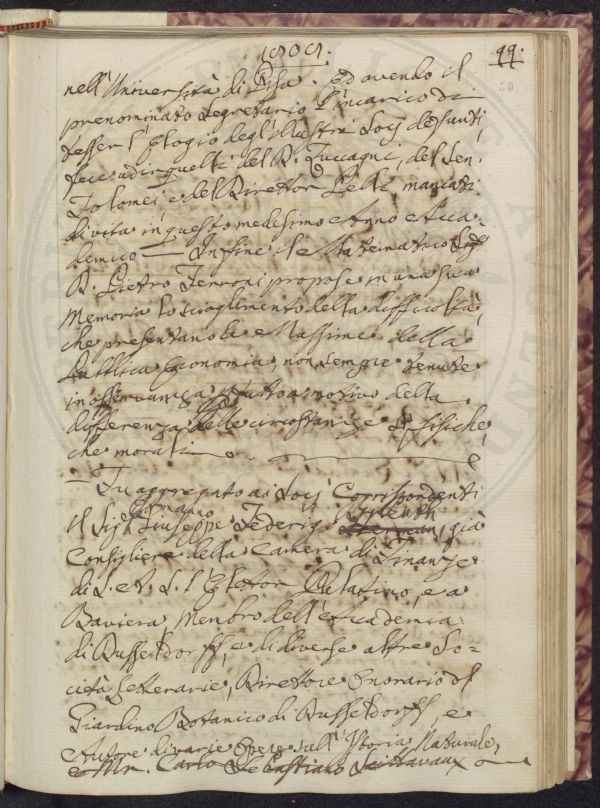 1809.
99.
nell'Università di Pisa. ed avendo il
prenominato Segretario l'incarico di
tesser l'Elogio degl'illustri Socj defunti
fece udir quelli del D. Zuccagni, del Sen.
Tolomei, e del Direttor Lelli mancati
di vita in questo medesimo Anno Acca-
demico — Infine il Matematico Sigr.
D. Pietro Ferroni propose in una sua
Memoria lo scioglimento della difficoltà
che presentano le Massime della
Pubblica Economia, non sempre tenute
in osservanza, a motivo della
differenza delle circostanze fisiche,
che morali
— Fu aggregato ai Socj Corrispondenti
il Sigr. Giuseppe Federigo, già
Consigliere della Camera di Finanze
di S. A. S. l'Elettor Palatino, e a
Baviera, Membro dell'Accademia
di Dusseldorff, e di diverse altre So-
cietà Letterarie, Direttore Onorario del
Giardino Botanico di Dusseldorff, e
Autore di varie Opere sull'Istoria Naturale,
e Mr. Carlo Sebastiano